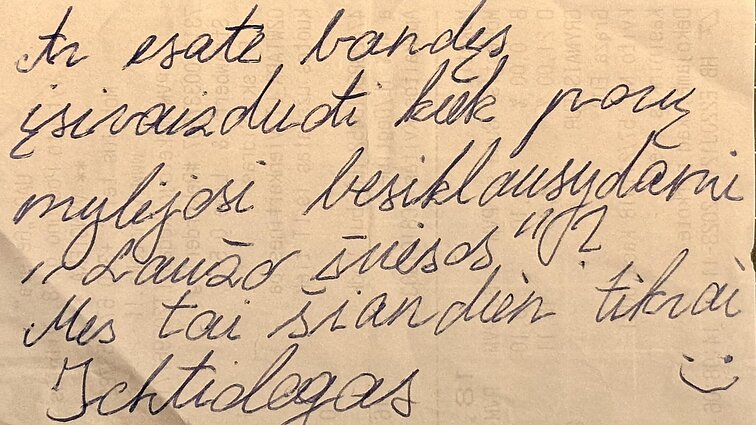 Ar esate bandęs
įsivaizduoti kiek porų
mylėjosi besiklausydami
„Laužo šviesos"?
Mes tai šiandien tikrai
Ichtidogas :)